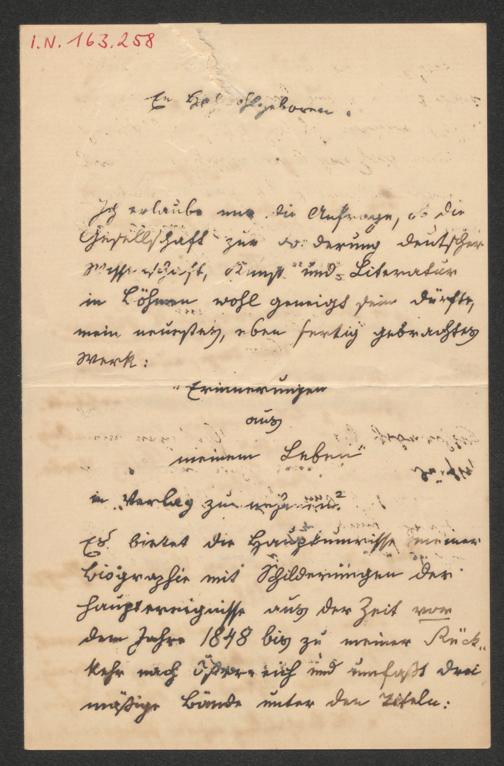 I.N. 163.258
Ew Hochwohlgeboren.
Ich erlaube mir die Anfrage, ob die
Gesellschaft zur Förderung deutscher
Wissenschaft, Kunst und Literatur
in Böhmen wohl geneigt sein dürfte,
mein neuestes, eben fertig gebrachtes
Werk:
"Erinnerungen
aus
meinem Leben"
in Verlag zu nehmen?
Es bietet die Hauptumrisse meiner
Biographie mit Schilderungen der
Hauptereignisse aus der Zeit vor
dem Jahre 1848 bis zu meiner Rück-
kehr nach Österreich und umfaßt drei
mäßige Bände unter den Titeln: